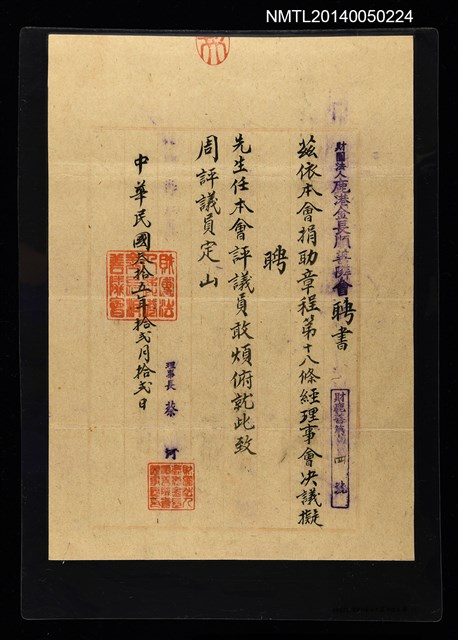 NMTL20140050224
財團法人鹿港金長門慈善會聘書
財 字第 四 號
茲依本會捐助章程第十八條經理事會決議擬
聘
先生任本會評議員敢煩俯就此致
周評議員定山
理事長 蔡
中華民國叁拾五年拾貳月拾貳日